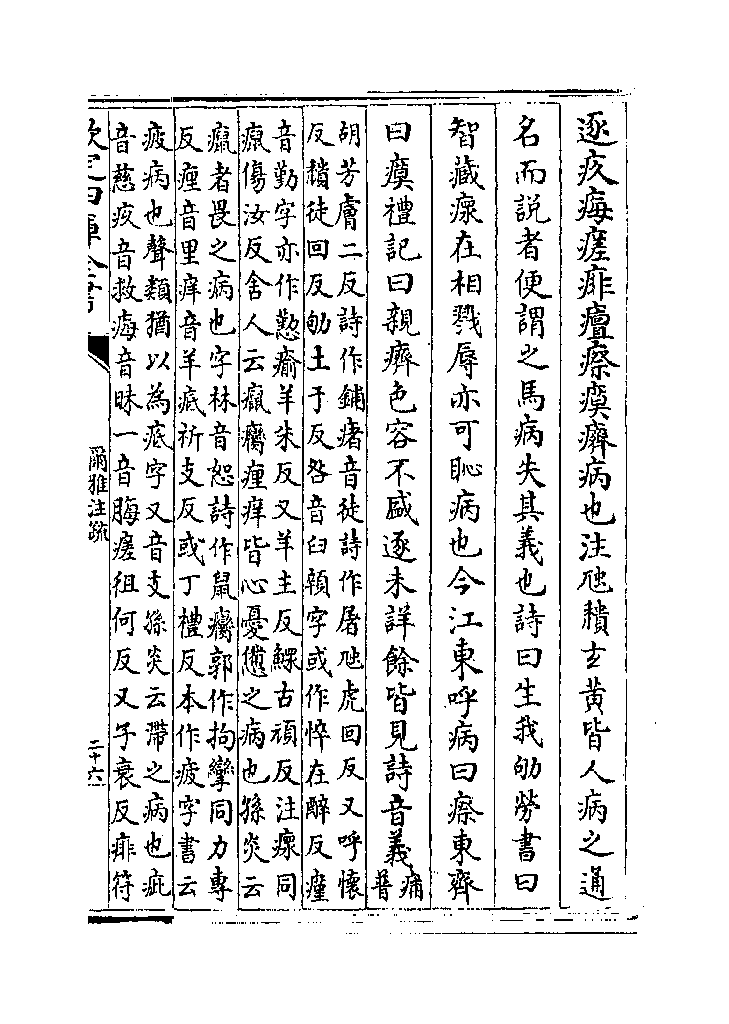 逐疚痗瘥痱癉瘵瘼癠病也注虺穨玄黃皆人病之通
名而說者便謂之馬病失其義也詩曰生我劬勞書曰
智藏瘝在相戮辱亦可恥病也今江東呼病曰瘵東齊
曰瘼禮記曰親癠色容不盛逐未詳餘皆見詩音義痡普
胡芳膚二反詩作鋪瘏音徒詩作屠虺虎回反又呼懷
反穨徒回反劬土于反咎音臼顇字或作悴在醉反瘽
音勤字亦作懃瘉羊朱反又羊主反鰥古頑反注瘝同
瘝傷汝反舍人云癙癵瘽痒皆心憂憊之病也孫炎云
癙者畏之病也字林音恕詩作鼠癵郭作拘攣同力專
反瘽音里痒音羊疷祈支反或丁禮反本作疲字書云
疲病也聲類猶以為疷字又音支孫炎云滯之病也疵
音慈疚音救痗音昧一音脢瘥徂何反又子衰反痱符
欽定四庫全書
爾雅注疏
二十六